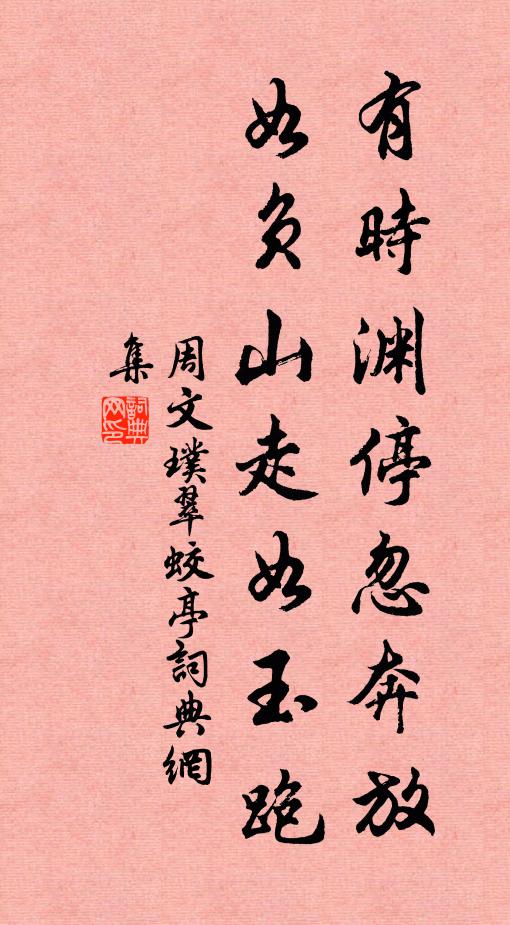 有時渊停忽奔放
如負山走如玉跑
周文璞翠蛟亭詞典網
集
詞典
网印